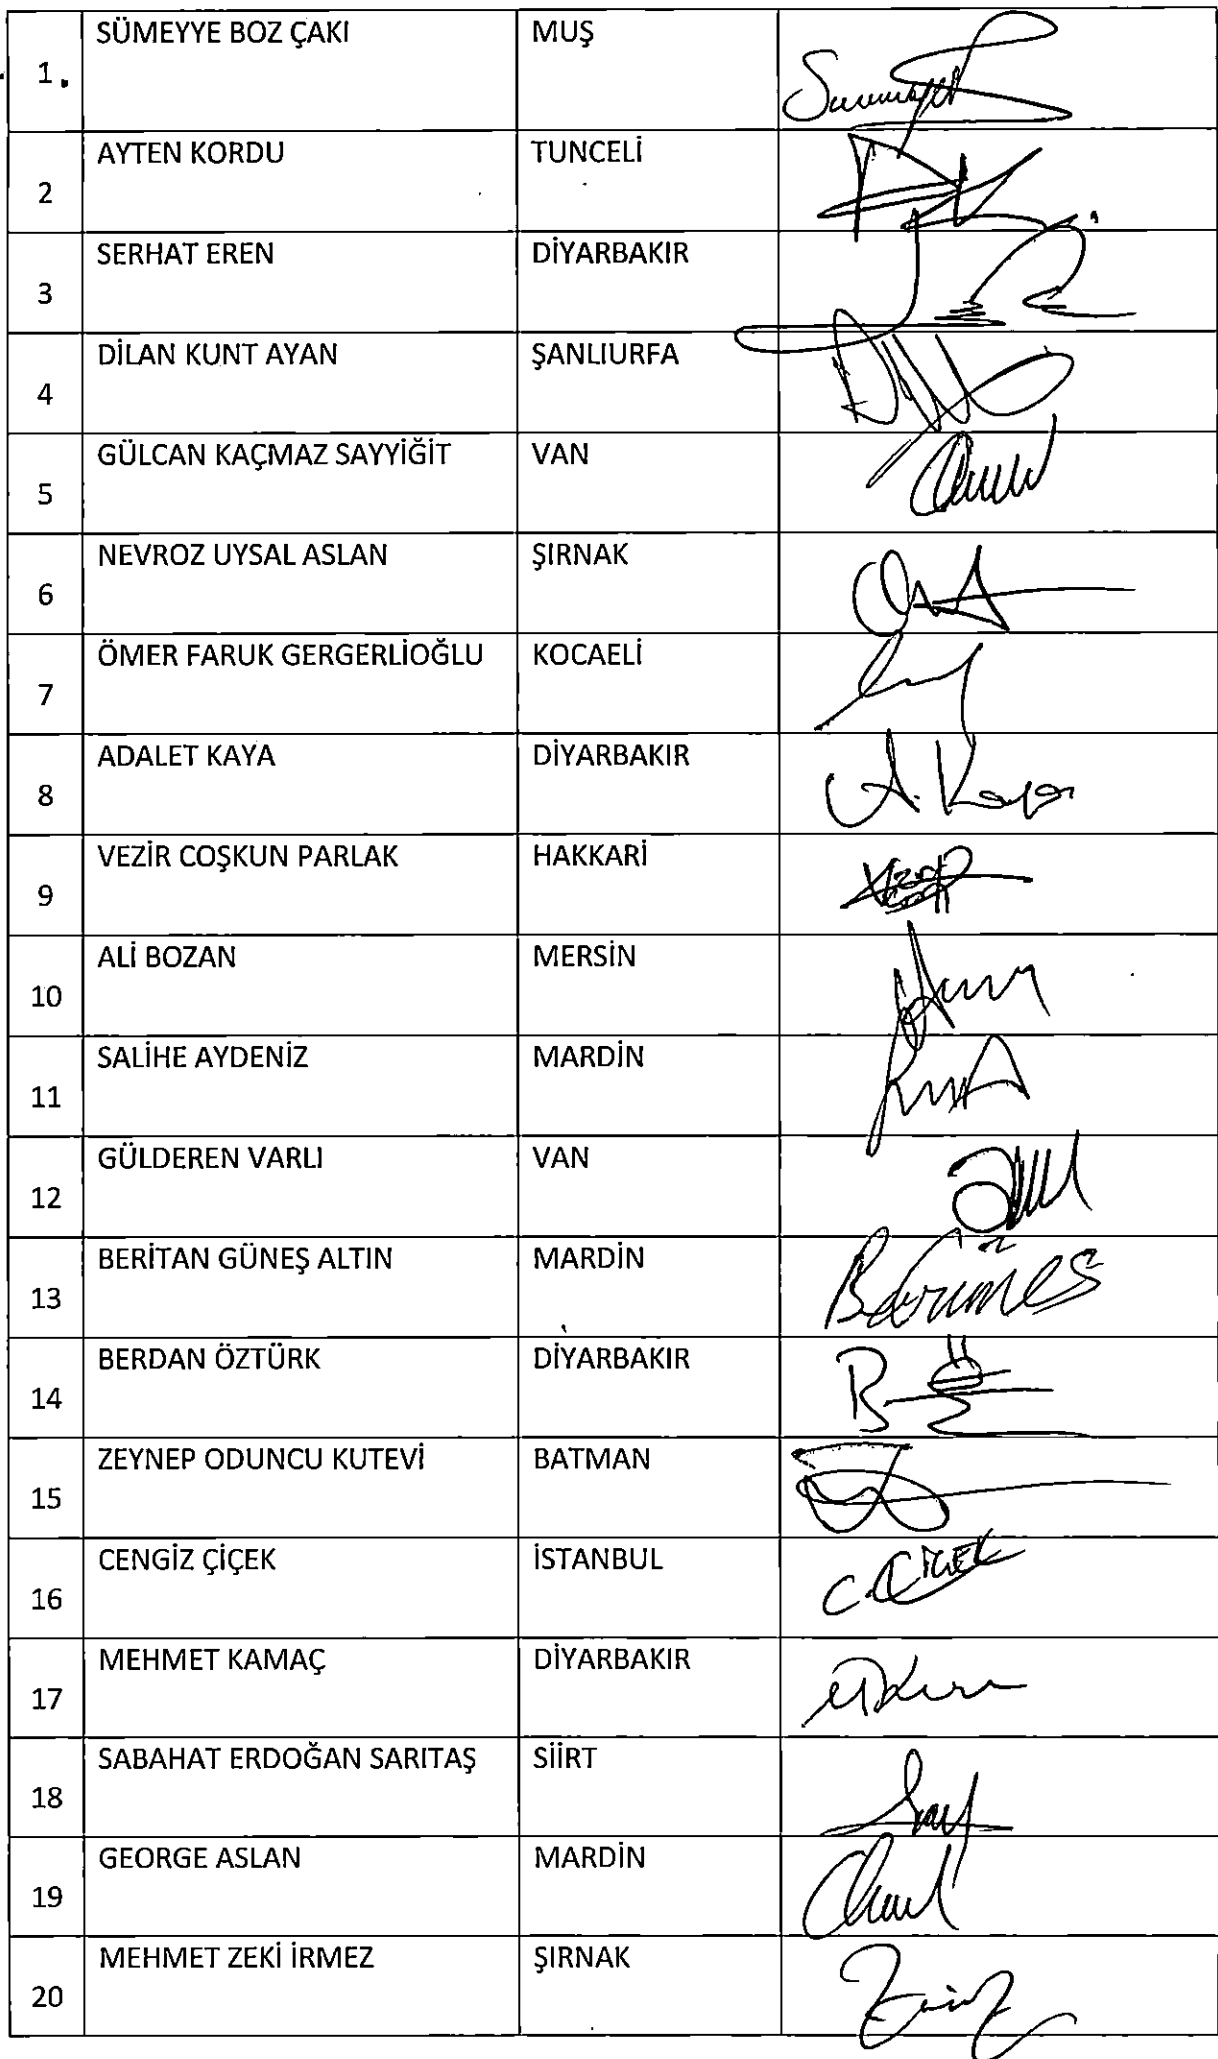 1. SÜMEYYE BOZ ÇAKI MUŞ
2 AYTEN KORDU TUNCELİ
3 SERHAT EREN DİYARBAKIR
4 DİLAN KUNT AYAN ŞANLIURFA
5 GÜLCAN KAÇMAZ SAYYİĞİT VAN
6 NEVROZ UYSAL ASLAN ŞIRNAK
7 ÖMER FARUK GERGERLİOĞLU KOCAELİ
8 ADALET KAYA DİYARBAKIR A. Kaya
9 VEZİR COŞKUN PARLAK HAKKARİ
10 ALİ BOZAN MERSİN
11 SALİHE AYDENİZ MARDİN
12 GÜLDEREN VARLI VAN
13 BERİTAN GÜNEŞ ALTIN MARDİN
14 BERDAN ÖZTÜRK DİYARBAKIR
15 ZEYNEP ODUNCU KUTEVİ BATMAN
16 CENGİZ ÇİÇEK İSTANBUL C. ÇİÇEK
17 MEHMET KAMAÇ DİYARBAKIR
18 SABAHAT ERDOĞAN SARITAŞ SİİRT
19 GEORGE ASLAN MARDİN
20 MEHMET ZEKİ İRMEZ ŞIRNAK